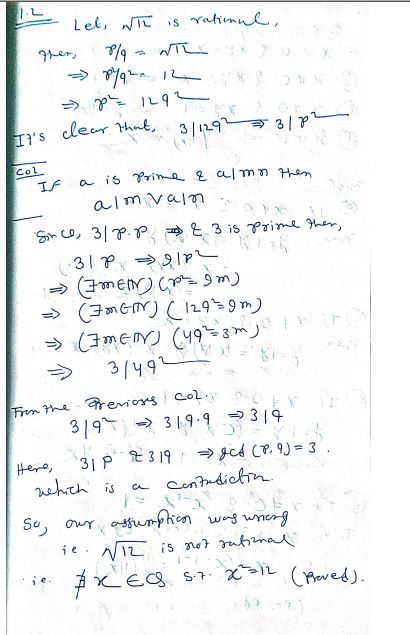 1.2
Let, √12 is rational,
then, p/q = √12
⇒ p²/q² = 12
⇒ p² = 12q²
It's clear that, 3|12q² ⇒ 3|p²
Col
If a is prime & a|mn then
a|m ∨ a|n
Since, 3|p.p ⇒ & 3 is prime then,
3|p ⇒ 9|p²
⇒ (∃m∈ℕ) (p² = 9m)
⇒ (∃m∈ℕ) (12q² = 9m)
⇒ (∃m∈ℕ) (4q² = 3m)
⇒ 3|4q²
From the Previous Col.
3|q² ⇒ 3|q.q ⇒ 3|q
Here, 3|p & 3|q ⇒ gcd (p.q) = 3.
which is a contradiction
So, our assumption was wrong
ie. √12 is not rational
ie. ∄ x ∈ Q s.t. x² = 12 (Proved).